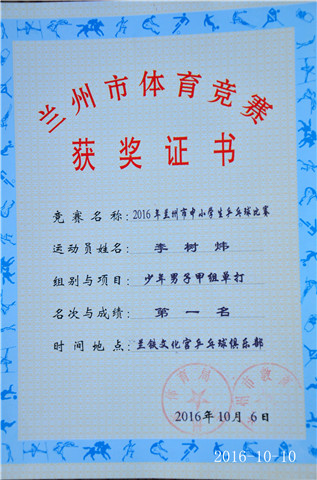 兰州市体育竞赛
获奖证书
竞赛名称：2016年兰州市中小学生乒乓球比赛
运动员姓名：李树炜
组别与项目：少年男子甲组单打
名次与成绩：第一名
时间地点：兰铁文化宫乒乓球俱乐部
2016年10月6日
2016-10-10